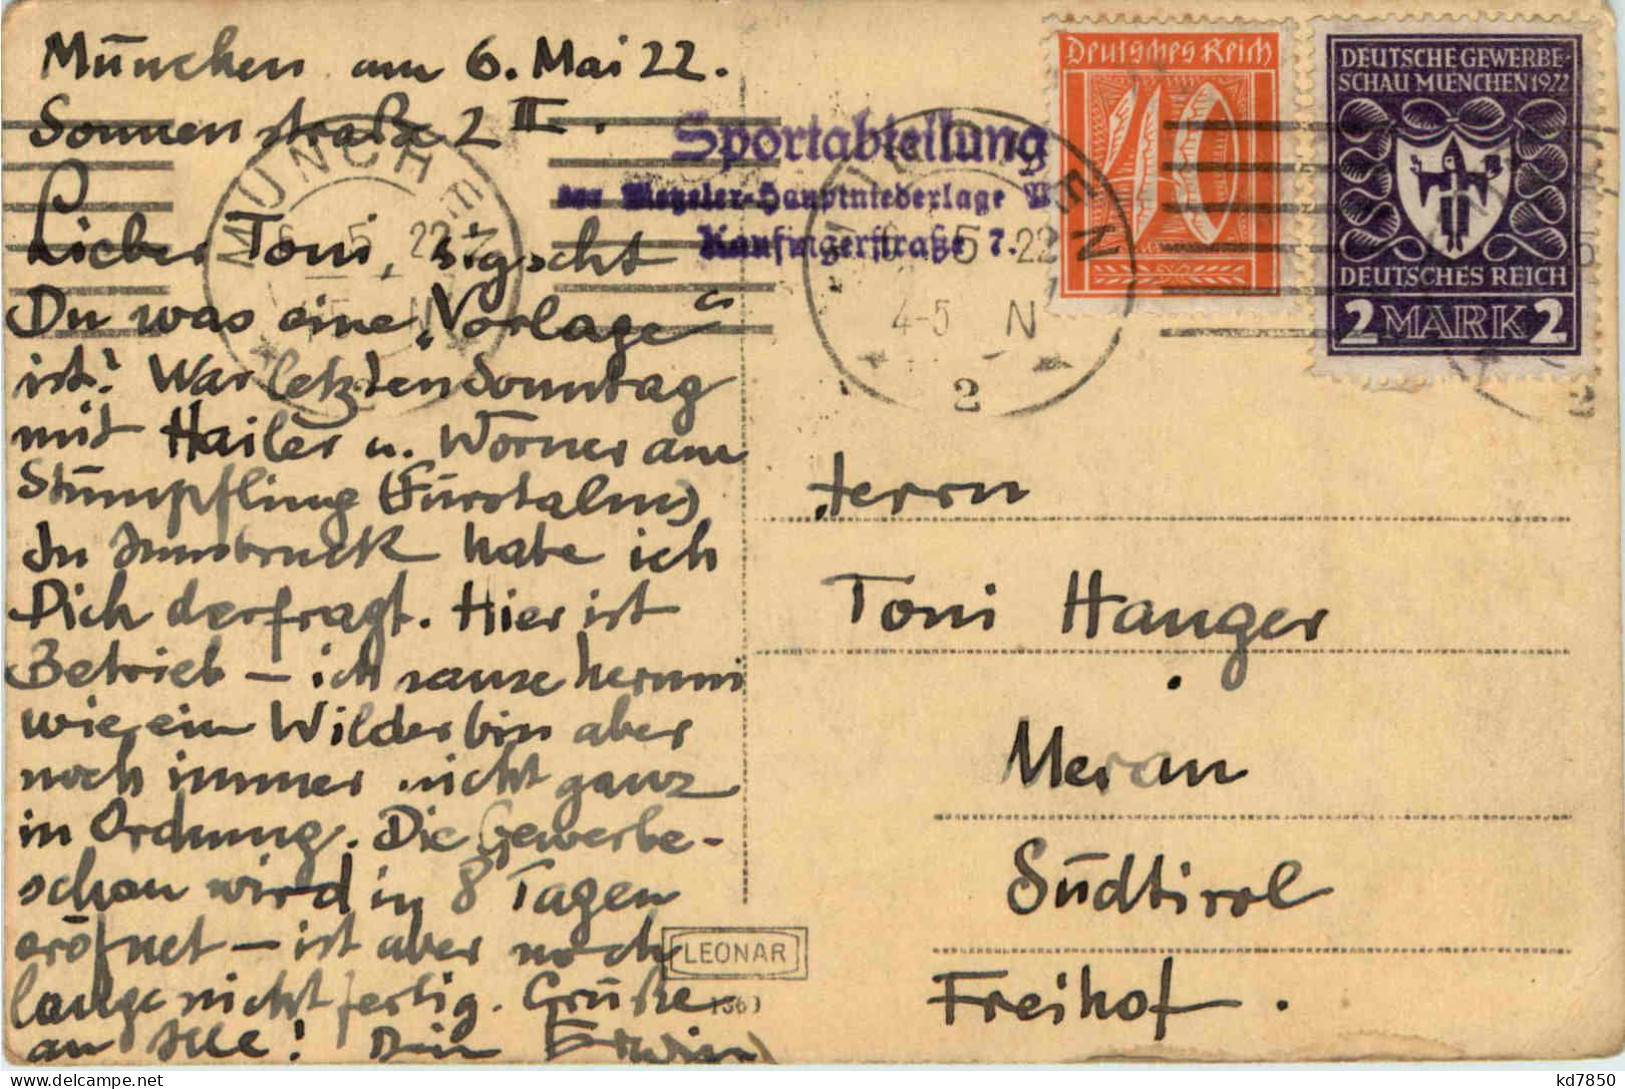 München am 6. Mai 22.
Sonnenstraße 2 III.
Lieber Toni, sigscht
Du was eine „Vorlage“
ist? War letzten Sonntag
mit Hailer u. Wörner am
Stümpfling (Fürstalm)
In Innsbruck habe ich
Dich derfragt. Hier ist
Betrieb – ich sause herum
wie ein Wilder bin aber
noch immer nicht ganz
in Ordnung. Die Gewerbe-
schau wird in 8 Tagen
eröfnet – ist aber noch
lange nicht fertig. Grüße
an Alle! Dein Erwin
MÜNCHEN
6. 5. 22
4-5 N
2
Sportabteilung
Metzeler-Hauptniederlage
Kaufingerstraße 7.
Deutsches Reich
40
DEUTSCHE GEWERBE-
SCHAU MUENCHEN 1922
DEUTSCHES REICH
2 MARK 2
Herrn
Toni Hanger
Meran
Südtirol
Freihof.
LEONAR
kd7850